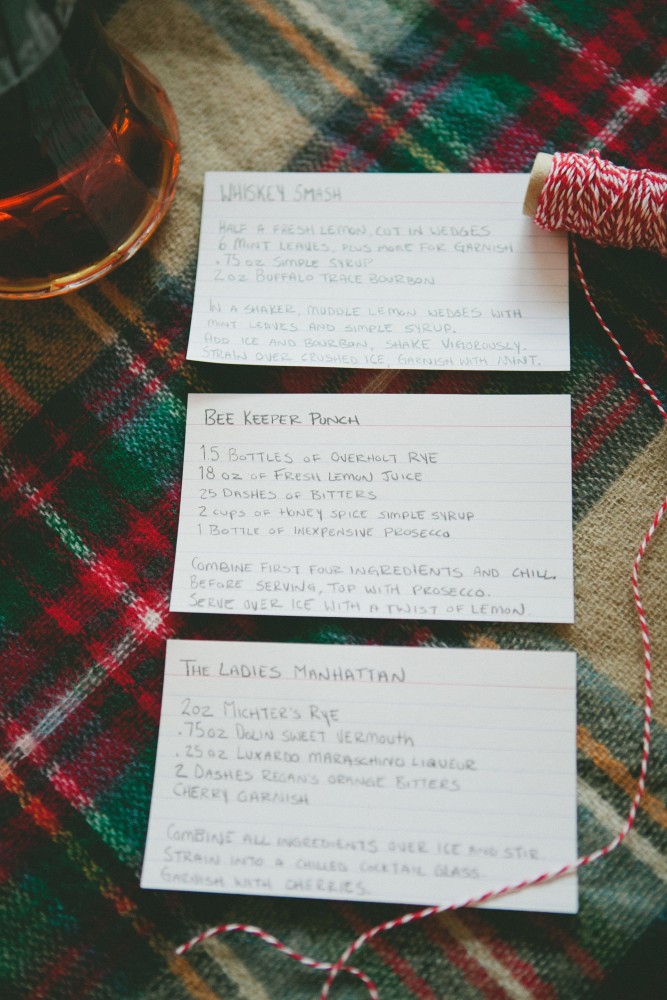 WHISKEY SMASH
HALF A FRESH LEMON, CUT IN WEDGES
6 MINT LEAVES, PLUS MORE FOR GARNISH
.75 OZ SIMPLE SYRUP
2 OZ BUFFALO TRACE BOURBON
IN A SHAKER, MUDDLE LEMON WEDGES WITH
MINT LEAVES AND SIMPLE SYRUP.
ADD ICE AND BOURBON, SHAKE VIGOROUSLY.
STRAIN OVER CRUSHED ICE, GARNISH WITH MINT.
BEE KEEPER PUNCH
1.5 BOTTLES OF OVERHOLT RYE
18 OZ OF FRESH LEMON JUICE
25 DASHES OF BITTERS
2 CUPS OF HONEY SPICE SIMPLE SYRUP
1 BOTTLE OF INEXPENSIVE PROSECCO
COMBINE FIRST FOUR INGREDIENTS AND CHILL.
BEFORE SERVING, TOP WITH PROSECCO.
SERVE OVER ICE WITH A TWIST OF LEMON.
THE LADIES MANHATTAN
2OZ MICHTER'S RYE
.75OZ DOLIN SWEET VERMOUTH
.25OZ LUXARDO MARASCHINO LIQUEUR
2 DASHES REGAN'S ORANGE BITTERS
CHERRY GARNISH
COMBINE ALL INGREDIENTS OVER ICE AND STIR.
STRAIN INTO A CHILLED COCKTAIL GLASS.
GARNISH WITH CHERRIES.